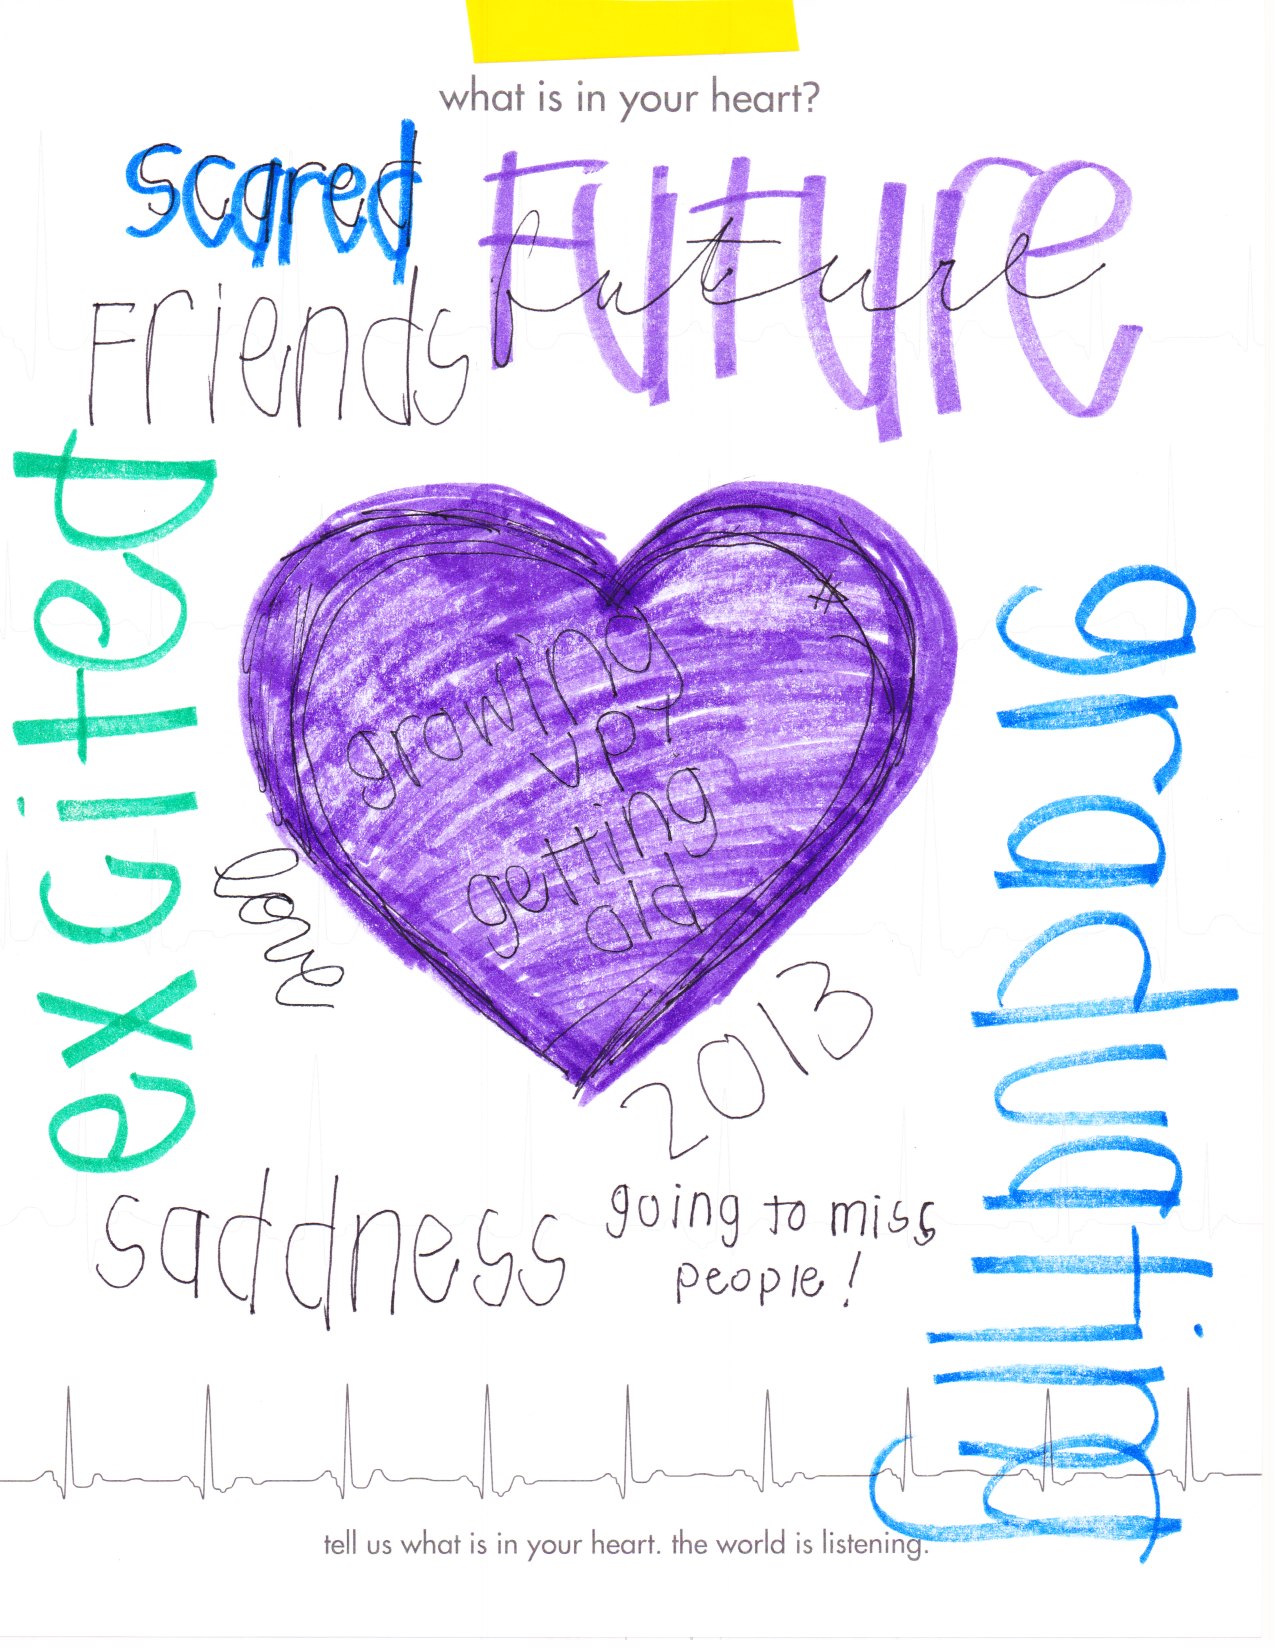 what is in your heart?
scared
Future
future
Friends
exgited
growing
up?
getting
old
love
2013
graduating
saddness
going to miss
people!
tell us what is in your heart. the world is listening.